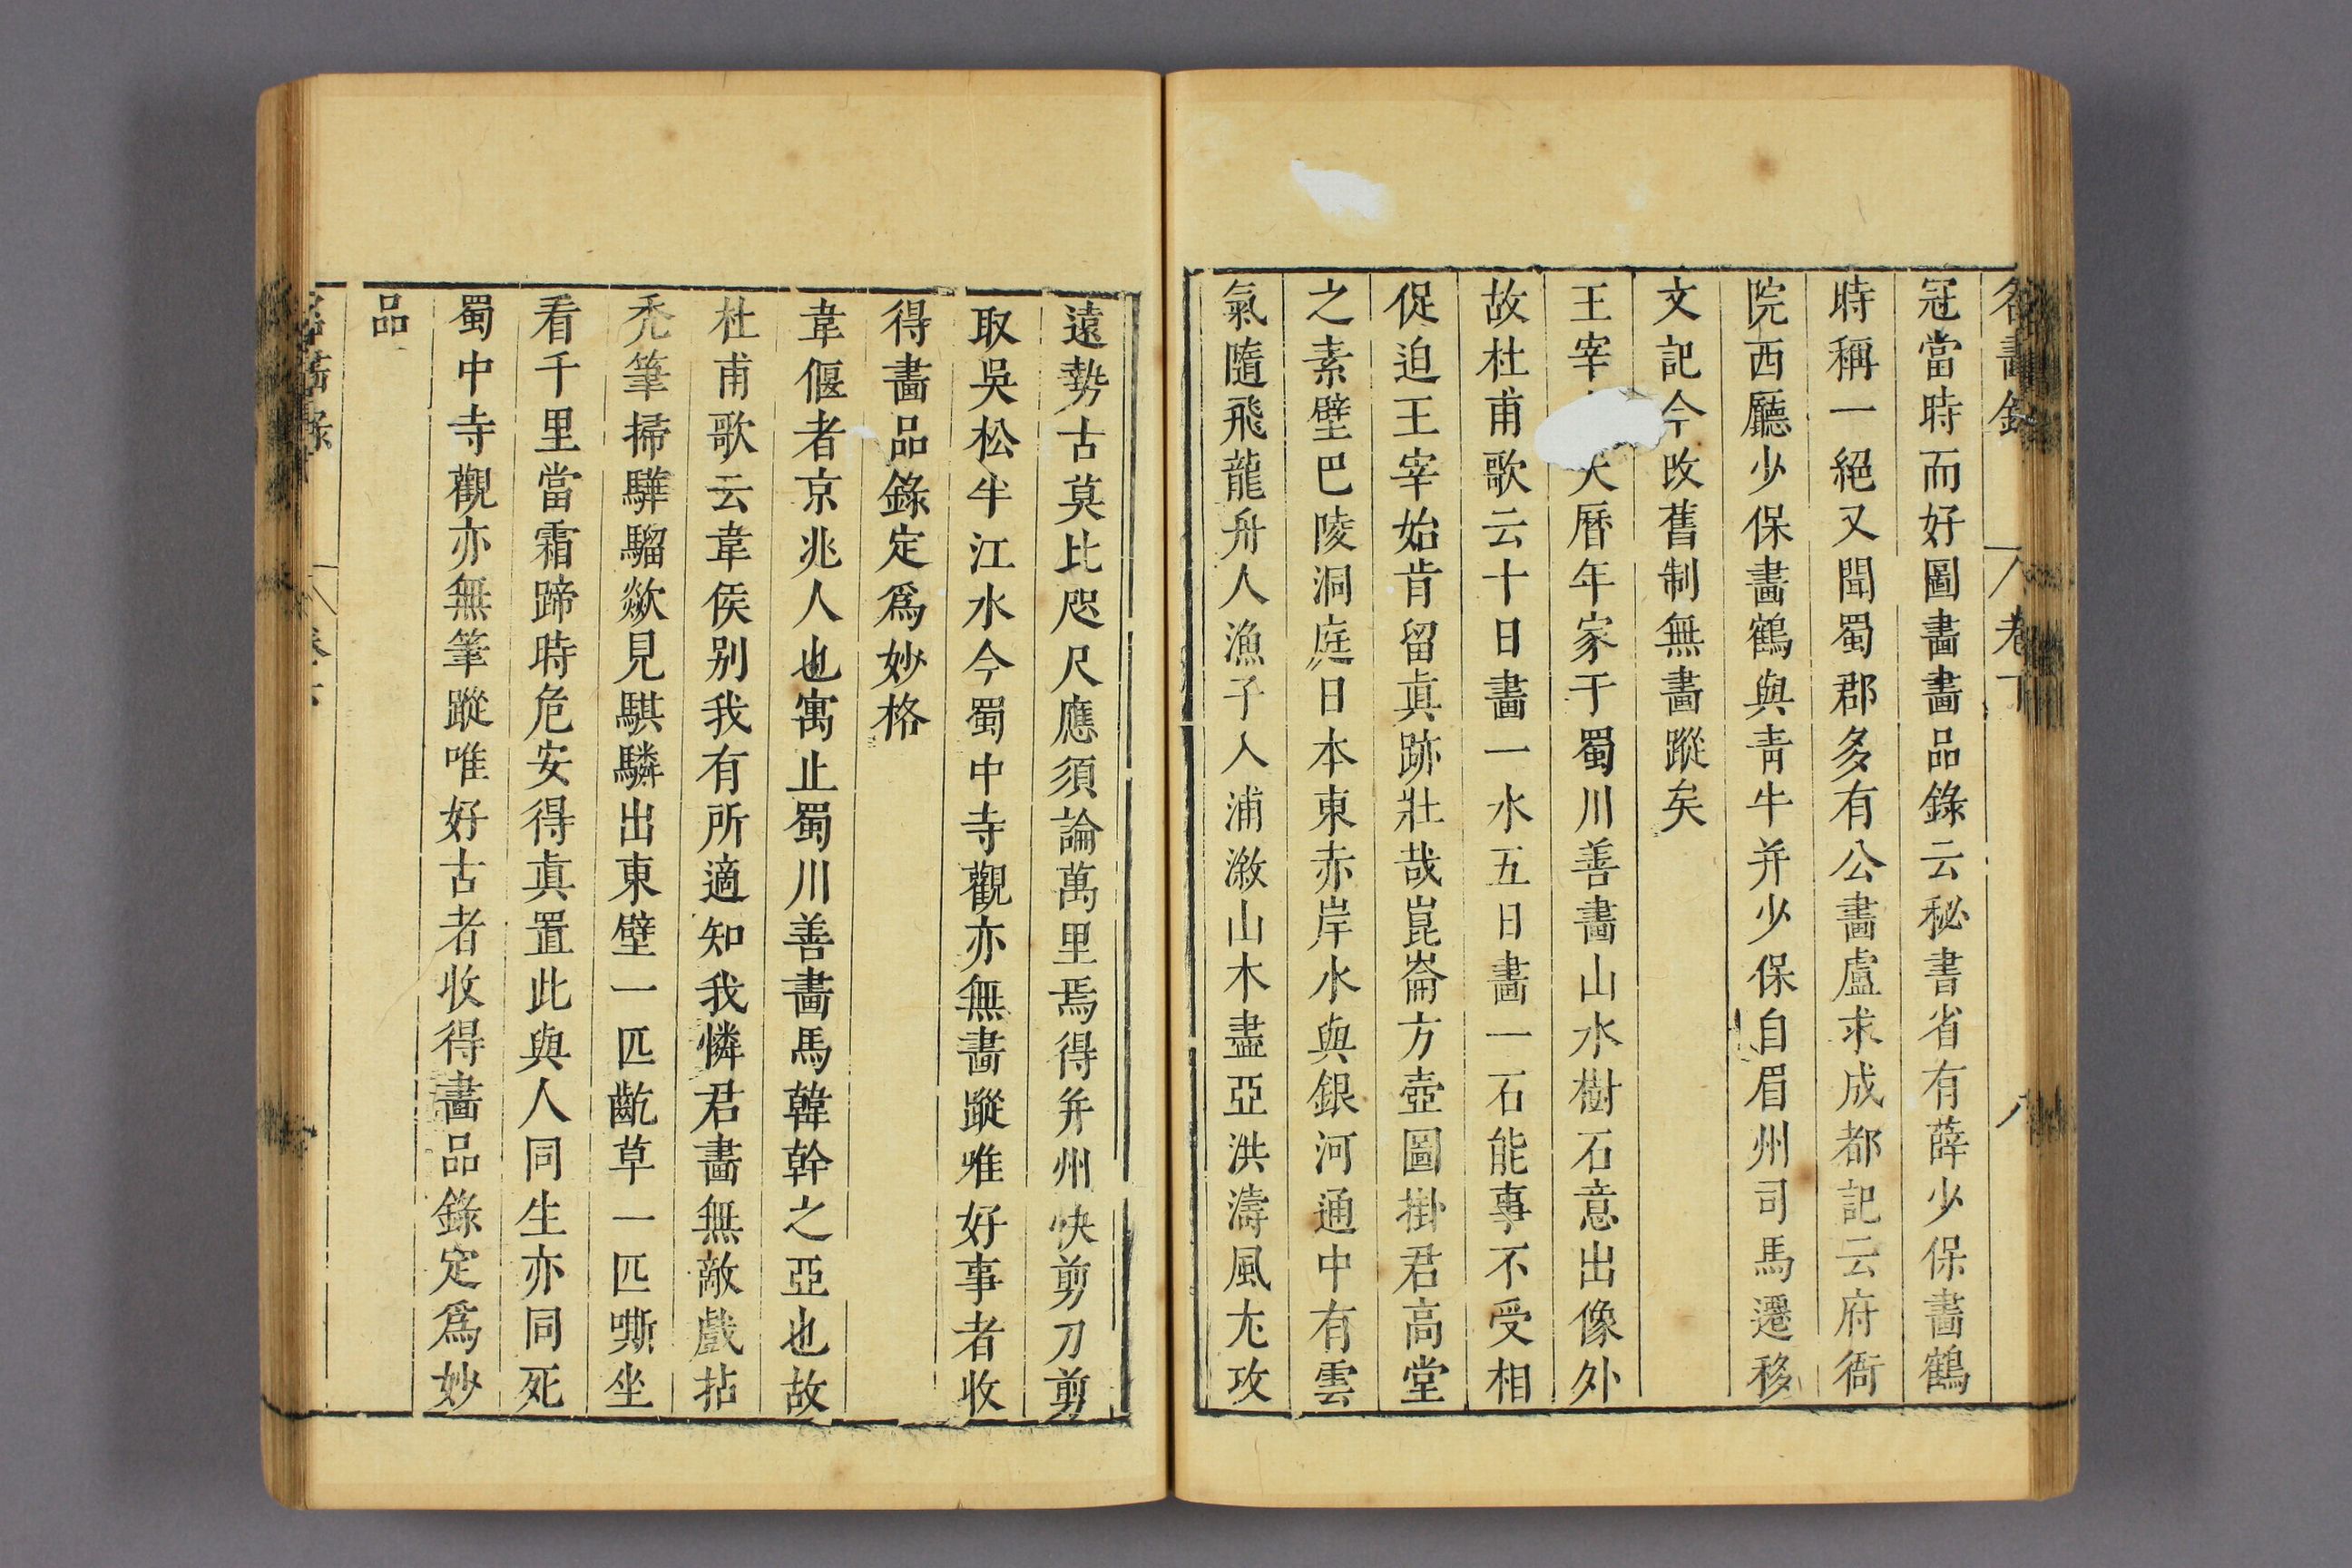 名畫錄 卷下 八
冠當時而好圖畫畫品錄云秘書省有薛少保畫鶴
時稱一絕又聞蜀郡多有公畫盧求成都記云府衙
院西廳少保畫鶴與青牛并少保自眉州司馬遷移
文記今改舊制無畫蹤矣
王宰大曆年家于蜀川善畫山水樹石意出像外
故杜甫歌云十日畫一水五日畫一石能事不受相
促迫王宰始肯留眞跡壯哉崑崙方壺圖掛君高堂
之素壁巴陵洞庭日本東赤岸水與銀河通中有雲
氣隨飛龍舟人漁子入浦漵山木盡亞洪濤風尤攻
遠勢古莫比咫尺應須論萬里焉得并州快剪刀剪
取吳松半江水今蜀中寺觀亦無畫蹤唯好事者收
得畫品錄定爲妙格
韋偃者京兆人也寓止蜀川善畫馬韓幹之亞也故
杜甫歌云韋侯别我有所適知我憐君畫無敵戲拈
禿筆掃驊騮歘見騏驎出東壁一匹齕草一匹嘶坐
看千里當霜蹄時危安得眞置此與人同生亦同死
蜀中寺觀亦無筆蹤唯好古者收得畫品錄定爲妙
品